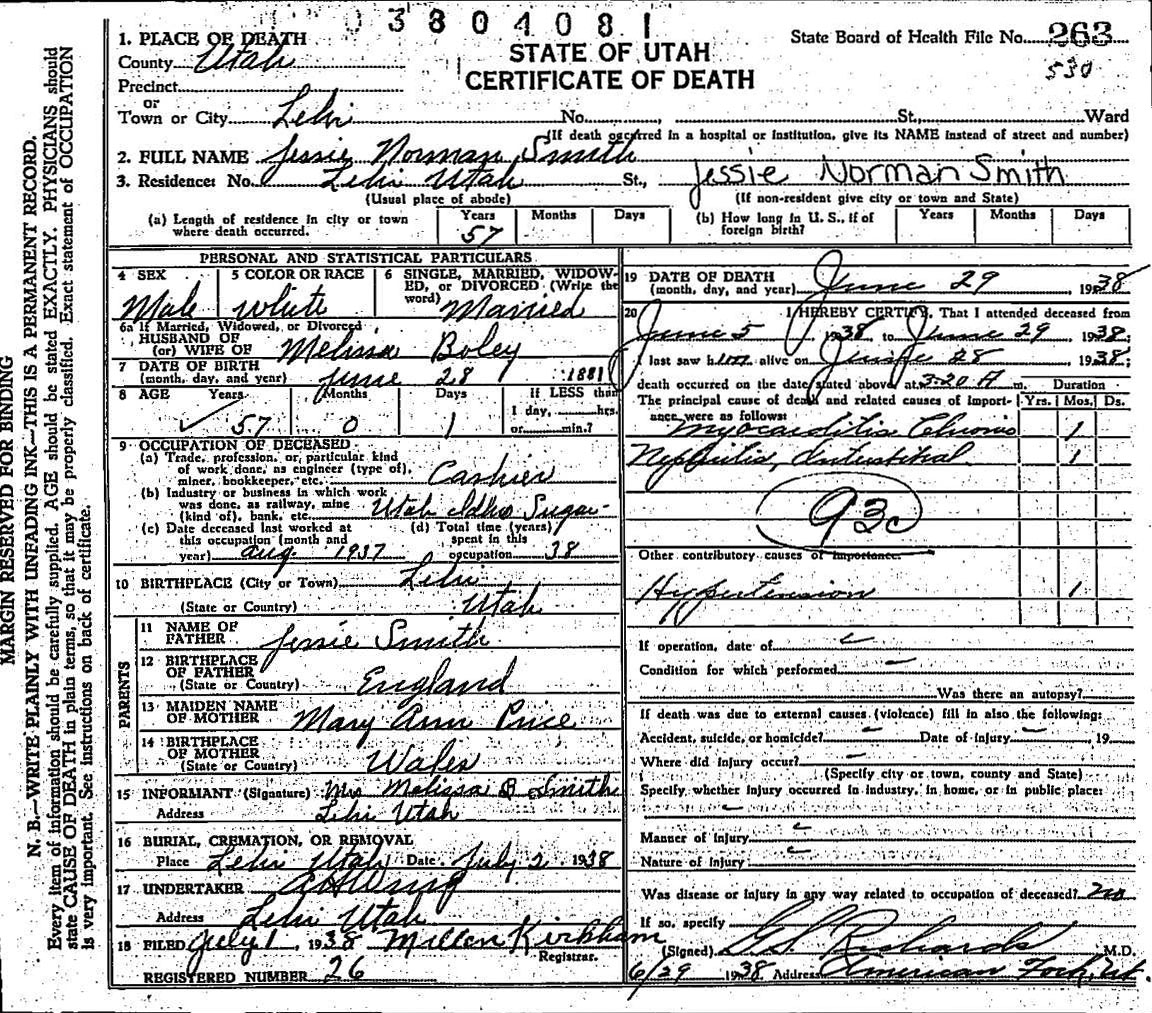 03804081
1. PLACE OF DEATH
County Utah
STATE OF UTAH
CERTIFICATE OF DEATH
State Board of Health File No. 263
530
Precinct
or
Town or City Lehi No. , St., Ward
(If death occurred in a hospital or institution, give its NAME instead of street and number)
2. FULL NAME Jessie Norman Smith
3. Residence: No. Lehi Utah St., Jessie Norman Smith
(Usual place of abode) (If non-resident give city or town and State)
(a) Length of residence in city or town where death occurred. Years 57 Months Days
(b) How long in U. S., if of foreign birth? Years Months Days
PERSONAL AND STATISTICAL PARTICULARS
4 SEX Male
5 COLOR OR RACE White
6 SINGLE, MARRIED, WIDOWED, or DIVORCED (Write the word) Married
6a If Married, Widowed, or Divorced
HUSBAND OF
(or) WIFE OF Melissa Boley
7 DATE OF BIRTH
(month, day, and year) June 28 1881
8 AGE Years Months Days If LESS than
57 0 1 1 day, hrs.
or min.?
9 OCCUPATION OF DECEASED
(a) Trade, profession, or particular kind
of work done, as engineer (type of),
miner, bookkeeper, etc. Cashier
(b) Industry or business in which work
was done, as railway, mine
(kind of), bank, etc. Utah Idho Sugar
(c) Date deceased last worked at
this occupation (month and
year) Aug 1937
(d) Total time (years)
spent in this
occupation 38
10 BIRTHPLACE (City or Town) Lehi
(State or Country) Utah
PARENTS
11 NAME OF
FATHER Jessie Smith
12 BIRTHPLACE
OF FATHER
(State or Country) England
13 MAIDEN NAME
OF MOTHER Mary Ann Price
14 BIRTHPLACE
OF MOTHER
(State or Country) Wales
15 INFORMANT (Signature) Mrs Melissa B Smith
Address Lehi Utah
16 BURIAL, CREMATION, OR REMOVAL
Place Lehi Utah Date July 2 1938
17 UNDERTAKER
Address Lehi Utah
18 FILED July 1, 1938 Millen Kirkham
Registrar.
REGISTERED NUMBER 26
19 DATE OF DEATH
(month, day, and year) June 29 1938
20 I HEREBY CERTIFY, That I attended deceased from
June 5, 1938 to June 29 1938;
I last saw him alive on June 28 1938;
death occurred on the date stated above at 3:20 A m.
Duration
The principal cause of death and related causes of importance were as follows: Yrs. Mos. Ds.
Myocarditis Chronic 1
Nephritis, Intestihal 1
93c
Other contributory causes of importance.
Hypertension 1
If operation, date of
Condition for which performed
Was there an autopsy?
If death was due to external causes (violence) fill in also the following:
Accident, suicide, or homicide? Date of injury 19
Where did injury occur?
(Specify city or town, county and State)
Specify whether injury occurred in industry, in home, or in public place:
Manner of Injury
Nature of Injury
Was disease or injury in any way related to occupation of deceased? no
If so, specify
(Signed) Richards M.D.
6/29 1938 Address American Fork, Ut.
MARGIN RESERVED FOR BINDING
N. B.—WRITE PLAINLY WITH UNFADING INK—THIS IS A PERMANENT RECORD.
Every item of information should be carefully supplied. AGE should be stated EXACTLY. PHYSICIANS should
state CAUSE OF DEATH in plain terms, so that it may be properly classified. Exact statement of OCCUPATION
is very important. See instructions on back of certificate.